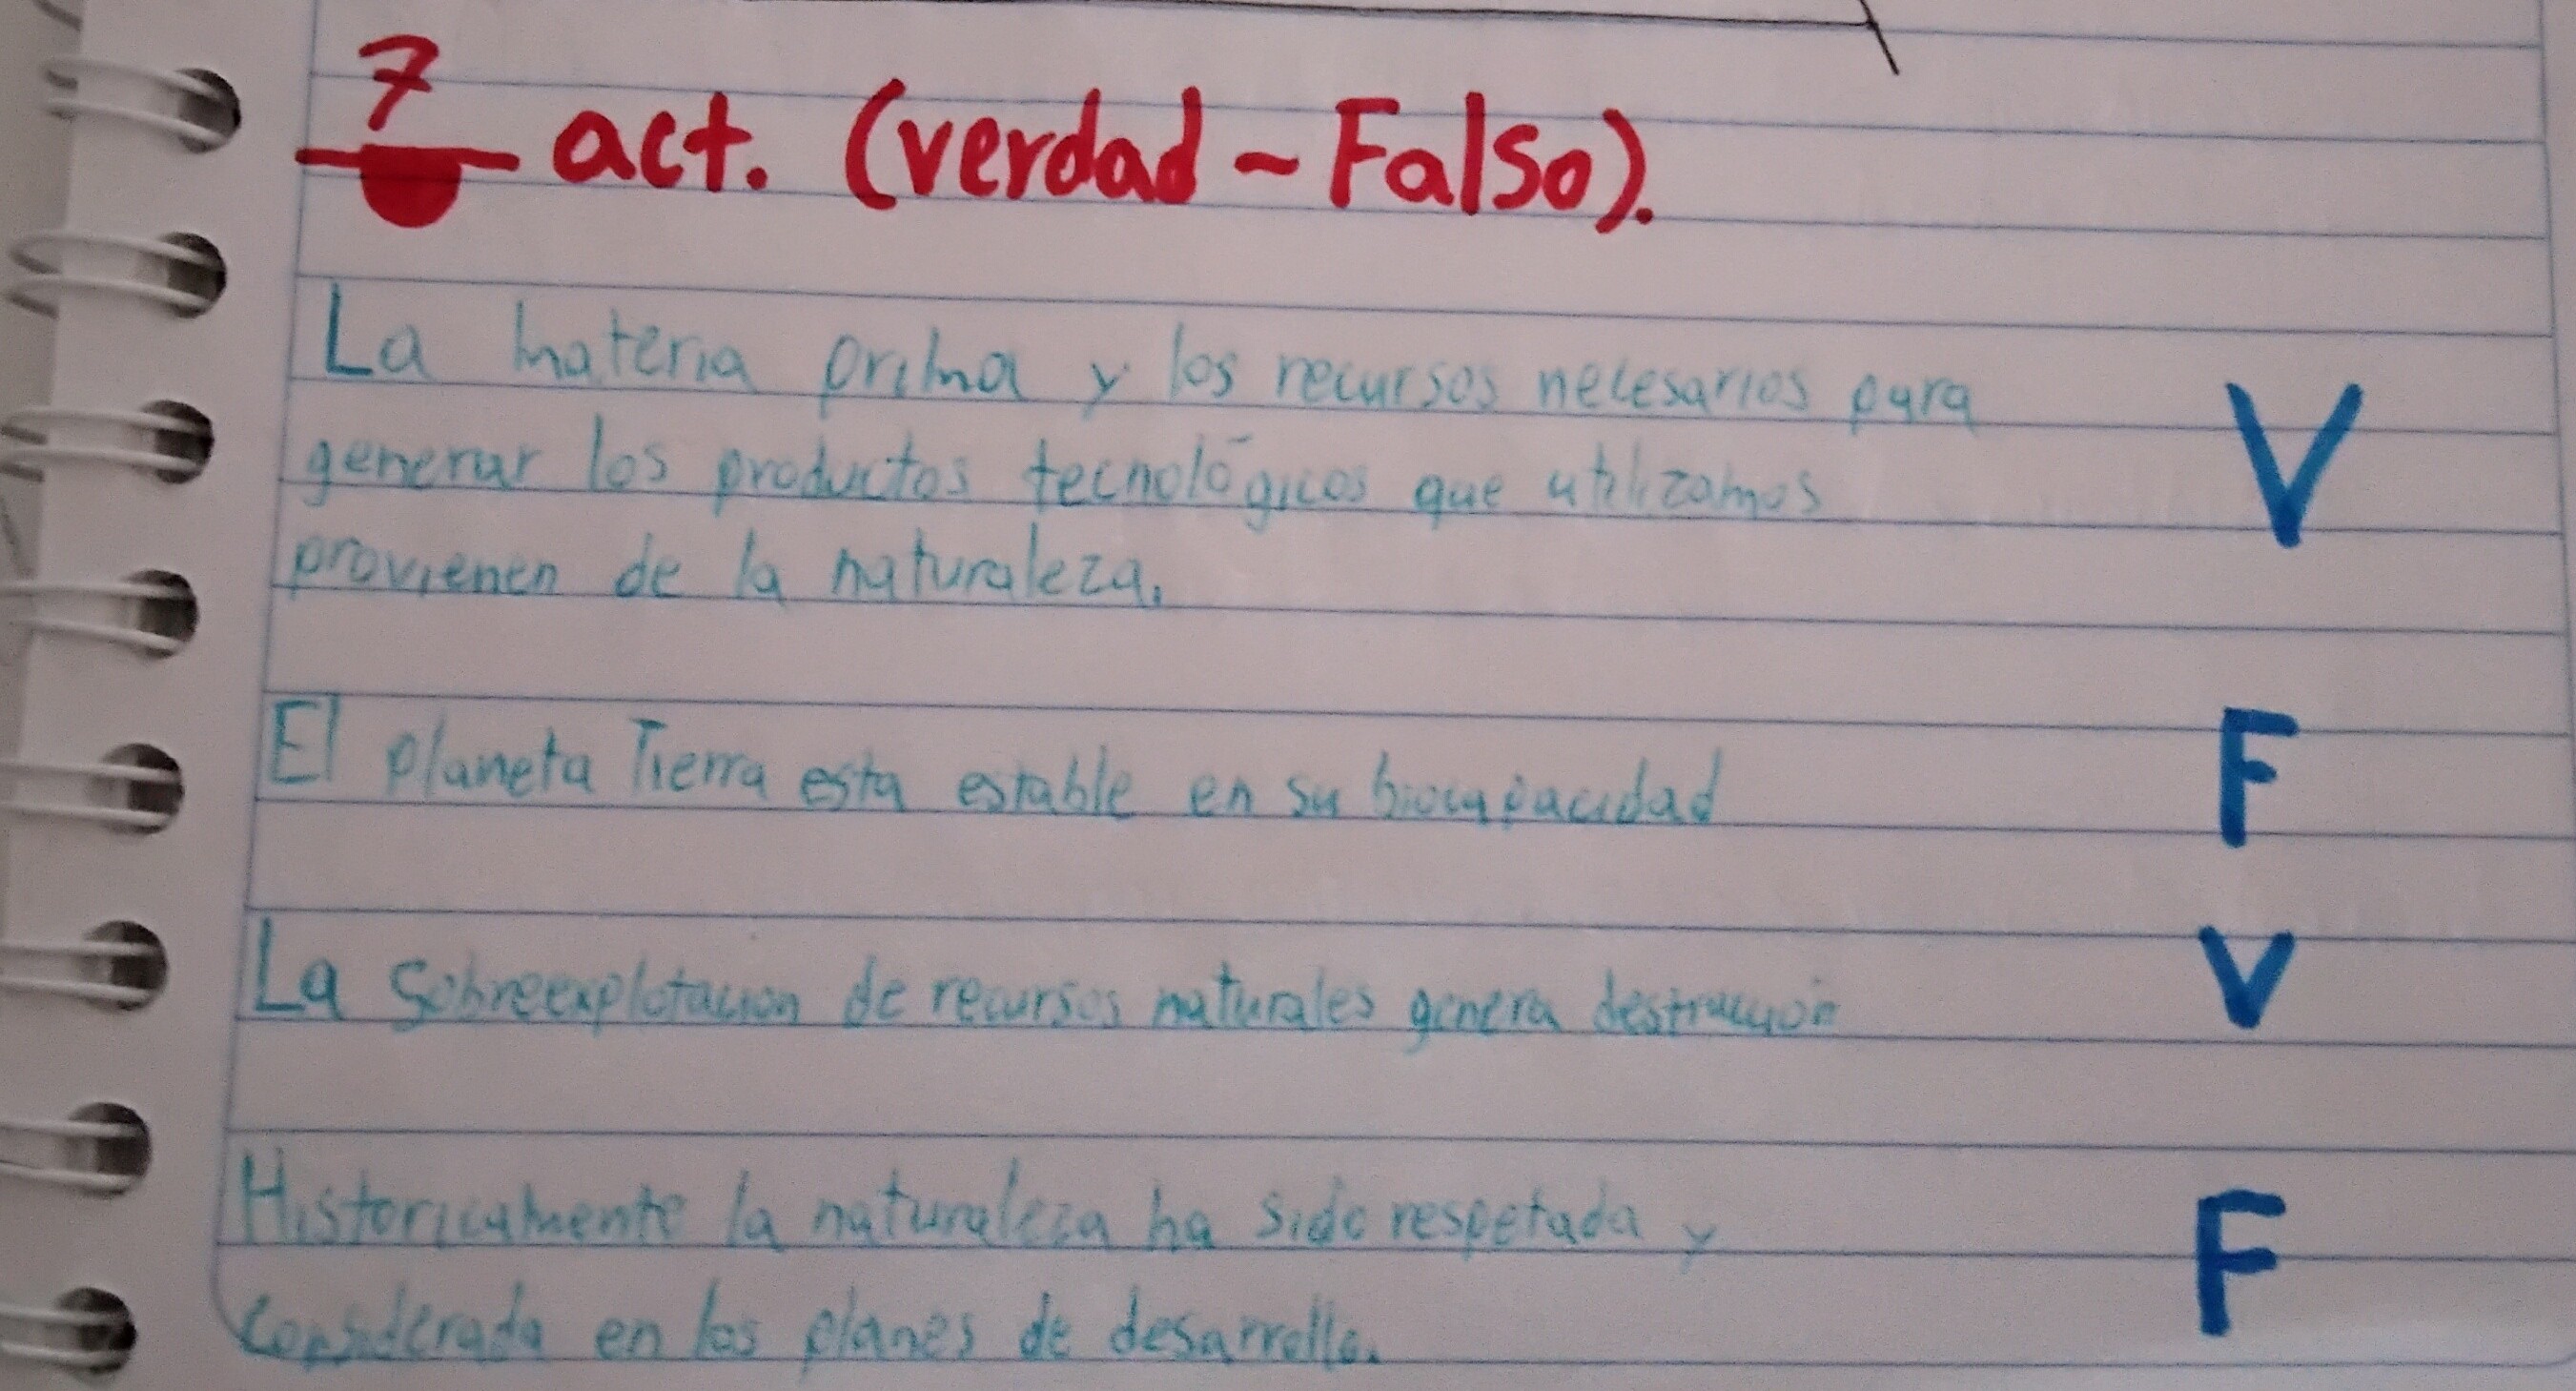 7 act. (verdad ~ Falso).
La materia prima y los recursos necesarios para
generar los productos tecnológicos que utilizamos
provienen de la naturaleza.
V
El planeta Tierra esta estable en su biocapacidad
F
La sobreexplotacion de recursos naturales genera destrucción
V
Historicamente la naturaleza ha sido respetada y
considerada en los planes de desarrollo.
F